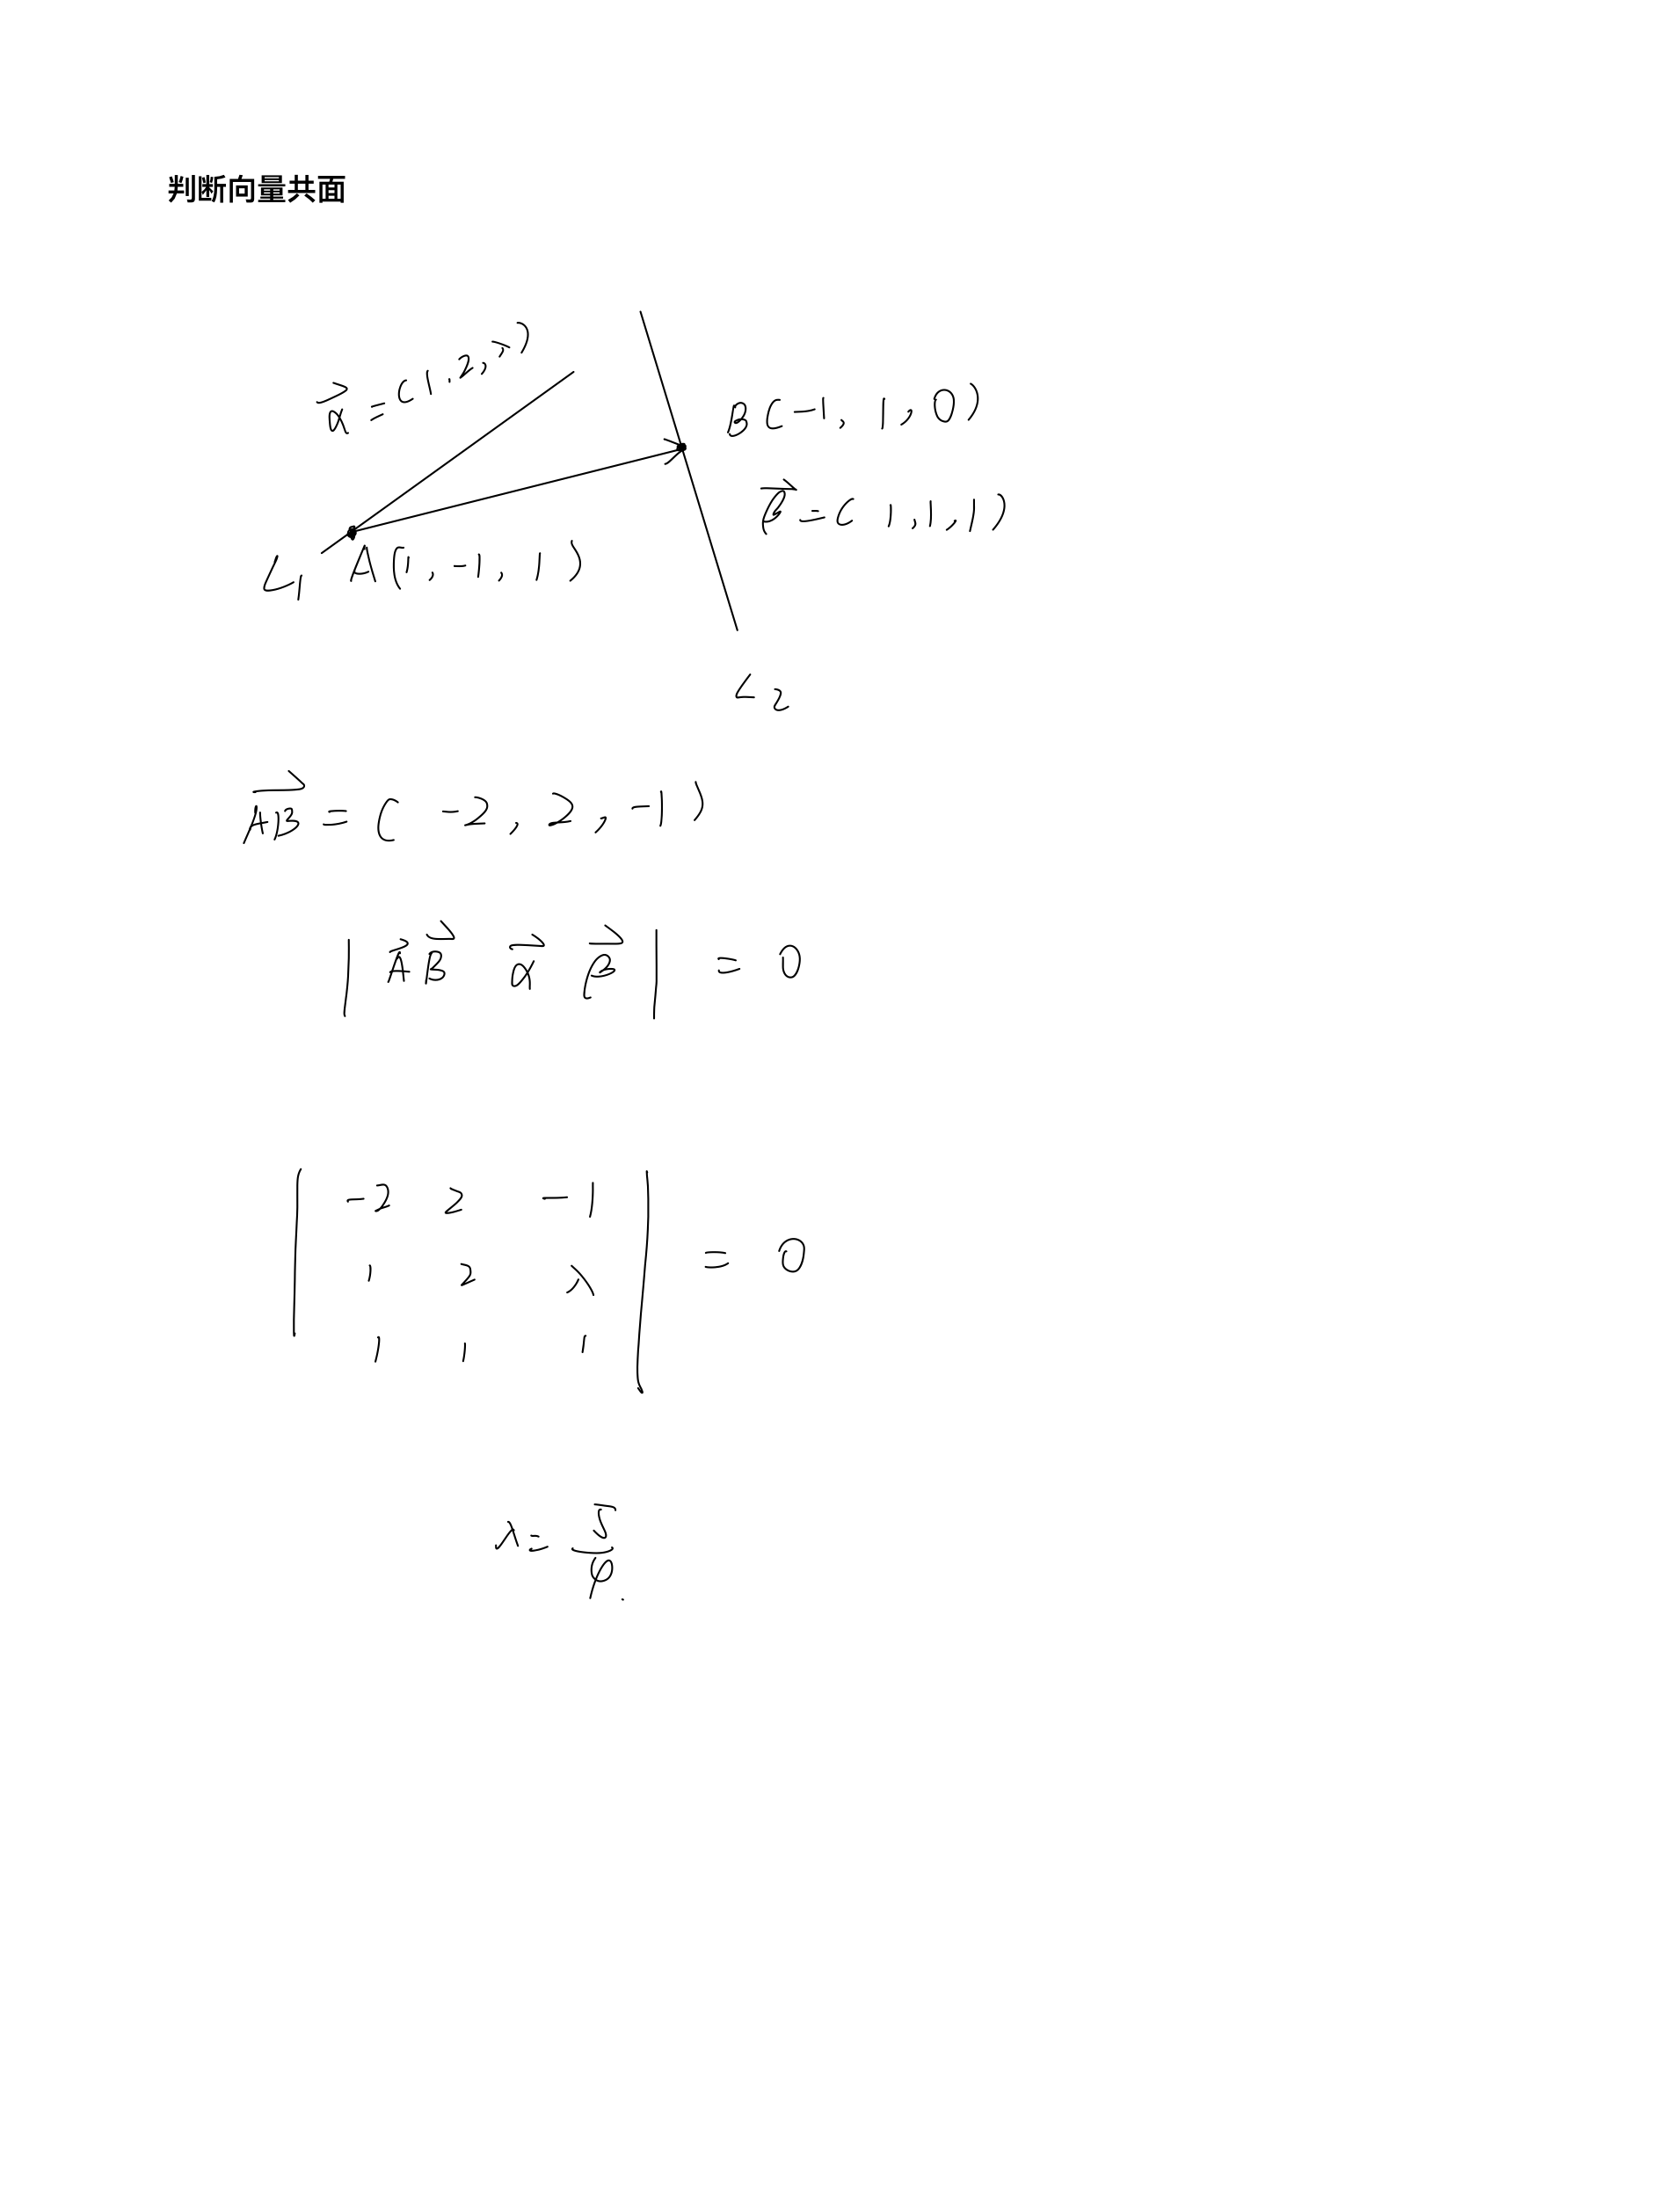 判断向量共面
α⃗ = (1, 2, λ)
B(-1, 1, 0)
β⃗ = (1, 1, 1)
L₁ A(1, -1, 1)
L₂
AB⃗ = (-2, 2, -1)
| AB⃗ α⃗ β⃗ | = 0
| -2 2 -1 |
| 1 2 λ | = 0
| 1 1 1 |
λ = 5/4.